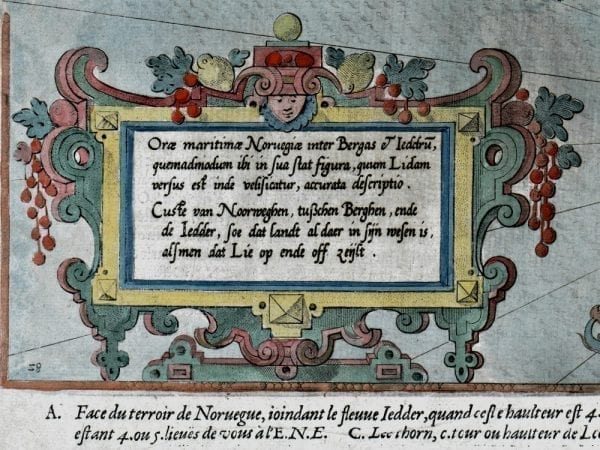 Oræ maritimæ Noruegiæ inter Bergas et Ieddrū,
quemadmodum ibi in sua stat figura, quum Lidam
versus est inde velificatur, accurata descriptio.
Custe van Noorweghen, tusschen Berghen, ende
de Iedder, soe dat landt al daer in sijn wesen is,
alsmen dat Lie op ende off zeijlt.
28
A. Face du terroir de Noruegue, ioindant le fleuve Iedder, quand ceste haulteur est 4.
estant 4. ou 5. lieuës de vous à l'E.N.E. C. Leethorn, c. tour ou haulteur de